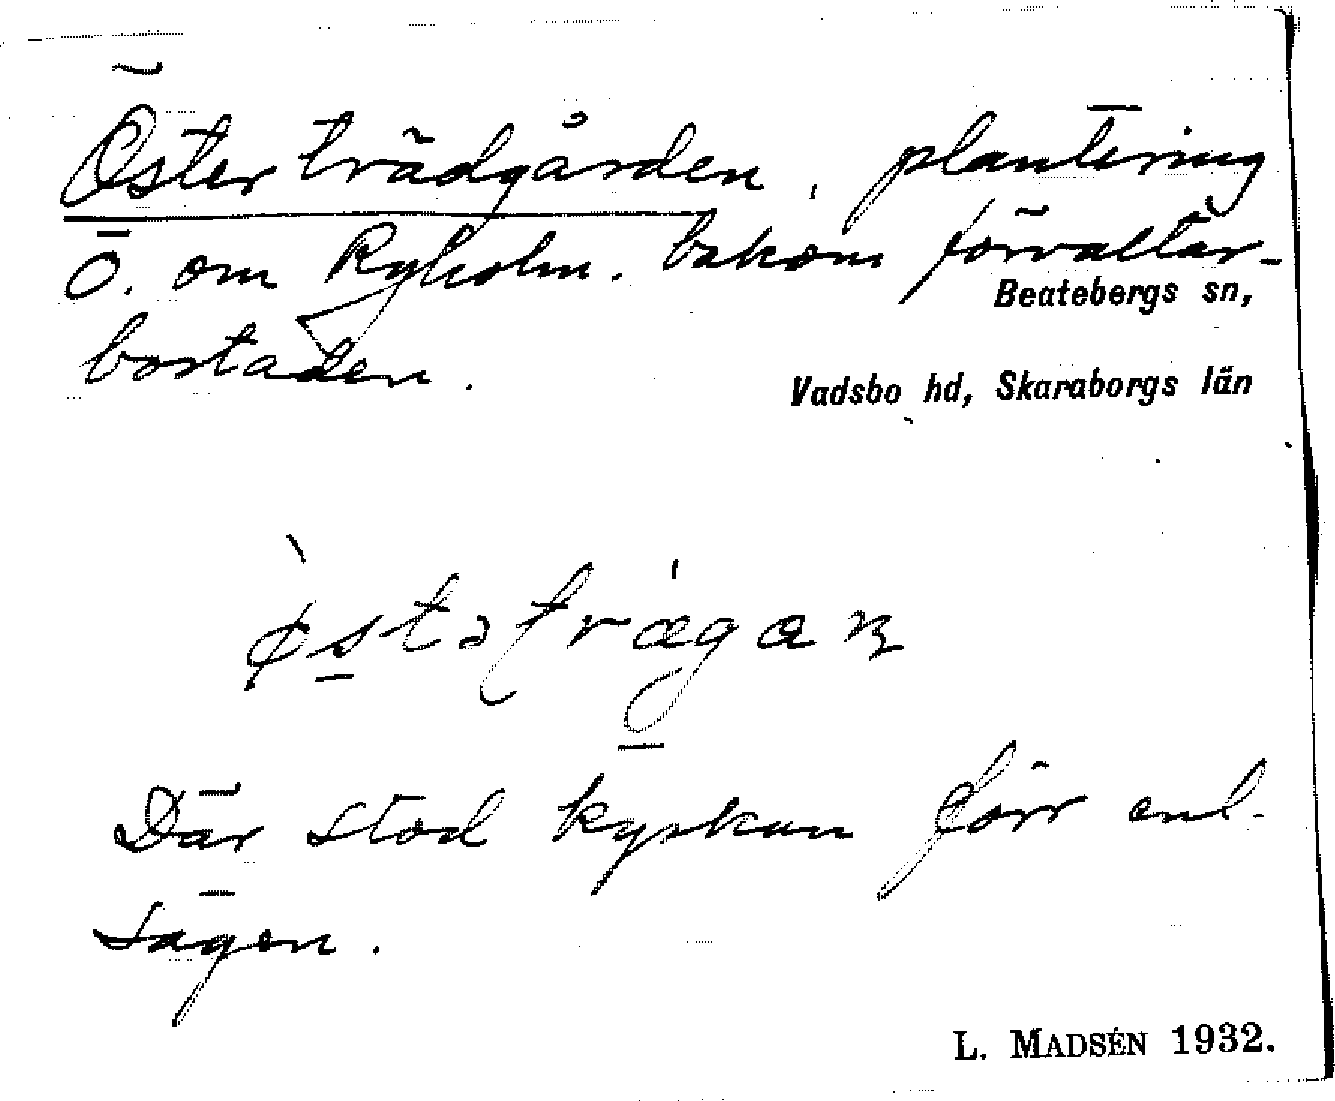 Österträdgården, plantering
Ö. om Ryholm. bakom förvaltar-
Beatebergs sn,
bostaden.
Vadsbo hd, Skaraborgs län
Där stod kyrkan förr enl.
sägen.
L. MADSÉN 1932.